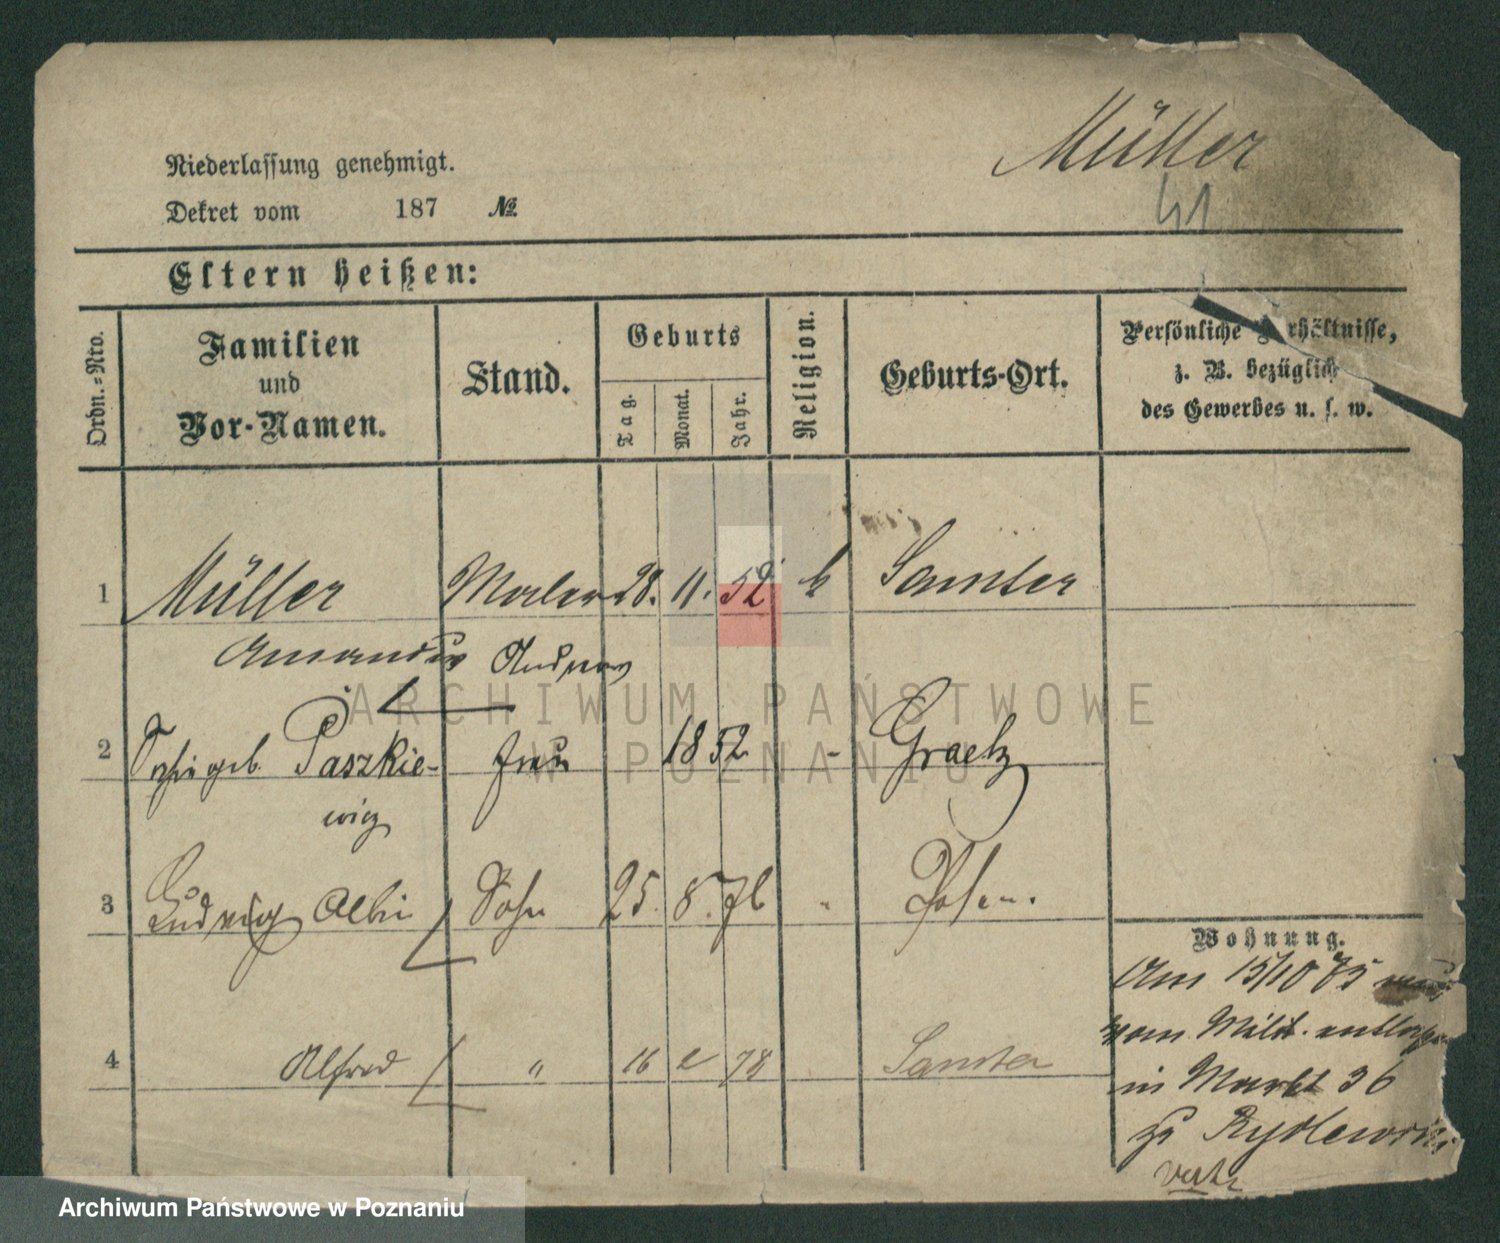 Müller
41
Niederlassung genehmigt.
Dekret vom 187 №
Eltern heißen:
Ordn.=Nro.
Familien
und
Vor-Namen.
Stand.
Geburts
Tag.
Monat.
Jahr.
Religion.
Geburts-Ort.
Persönliche Verhältnisse,
z. B. bezüglich
des Gewerbes u. s. w.
1 Müller Maler 28. 11. 52 k Samter
Amandus Andreas
2 geb. Paszkie- Frau 1852 - Graetz
wicz
3 Ludwig Albin Sohn 25. 8. 76 " Posen.
4 Alfred " 16 2 78 Samter
Wohnung.
Am 15/10 75
vom Milit. entlassen
in Markt 36
zu Rydlewski
verte
ARCHIWUM PAŃSTWOWE
W POZNANIU
Archiwum Państwowe w Poznaniu